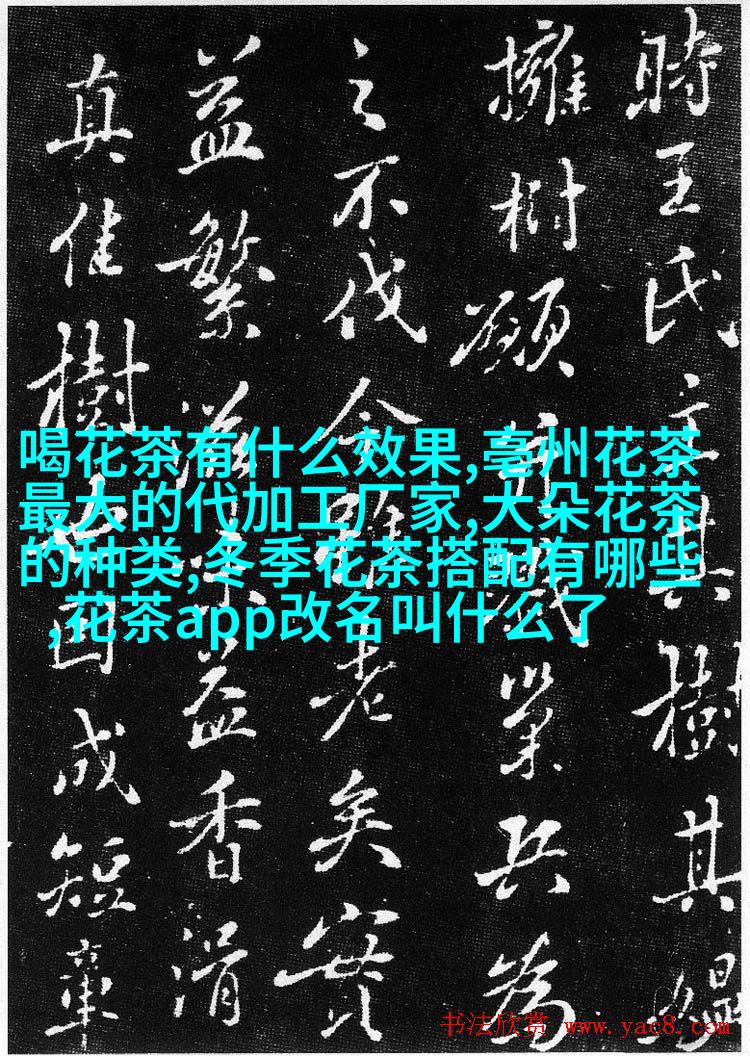 時王氏主其樹其
擁樹願并戕業兵為
之不伐今雖老矣實
益繁滋味益香滑
真佳樹也因成短章
喝花茶有什么效果,亳州花茶
最大的代加工厂家,大朵花茶
的种类,冬季花茶搭配有哪些
,花茶app改名叫什么了
书法欣赏 www.yac8.com